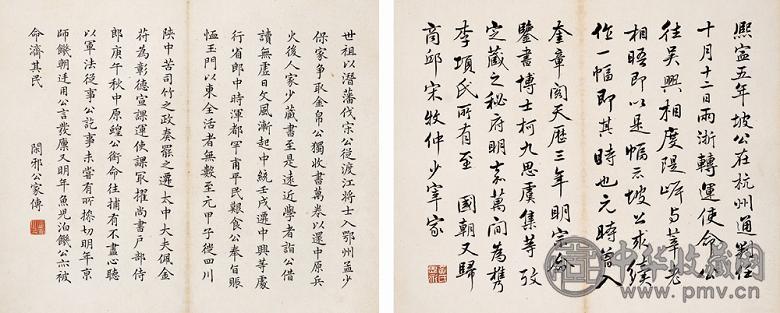 熙寧五年坡公在杭州通判任
十月十二日兩浙轉運使命公
往吳興相度隄岸與莘老
相晤即以是幅示坡公求續
作一幅即其時也元時曾入
奎章閣天歷三年明宗命
鑒書博士柯九思虞集等攷
定藏之秘府明嘉萬間為檇
李項氏所有至 國朝又歸
商邱宋牧仲少宰家
世祖以潛藩伐宋公從渡江將士入鄂州孟少
保家爭取金帛公獨收書萬卷以還中原兵
火後人家少藏書至是遠近學者詣公借
讀無虛日文風漸起中統壬戌遷中興等處
行省郎中時渾都罕甫平民艱食公奉旨賑
恤玉門以東全活者無數至元甲子從四川
陝中苦司竹之政奏罷之遷太中大夫佩金
符為彰德宣課運使課最擢尚書戶部侍
郎庚午秋中原蝗公銜命往捕有不盡心聽
以軍法從事公訖事未嘗有所捶切明年京
師饑朝廷用公言發廩又明年魚兒泊饑公亦被
命濟其民
閑邪公家傳
中华收藏网
www.pmv.cn